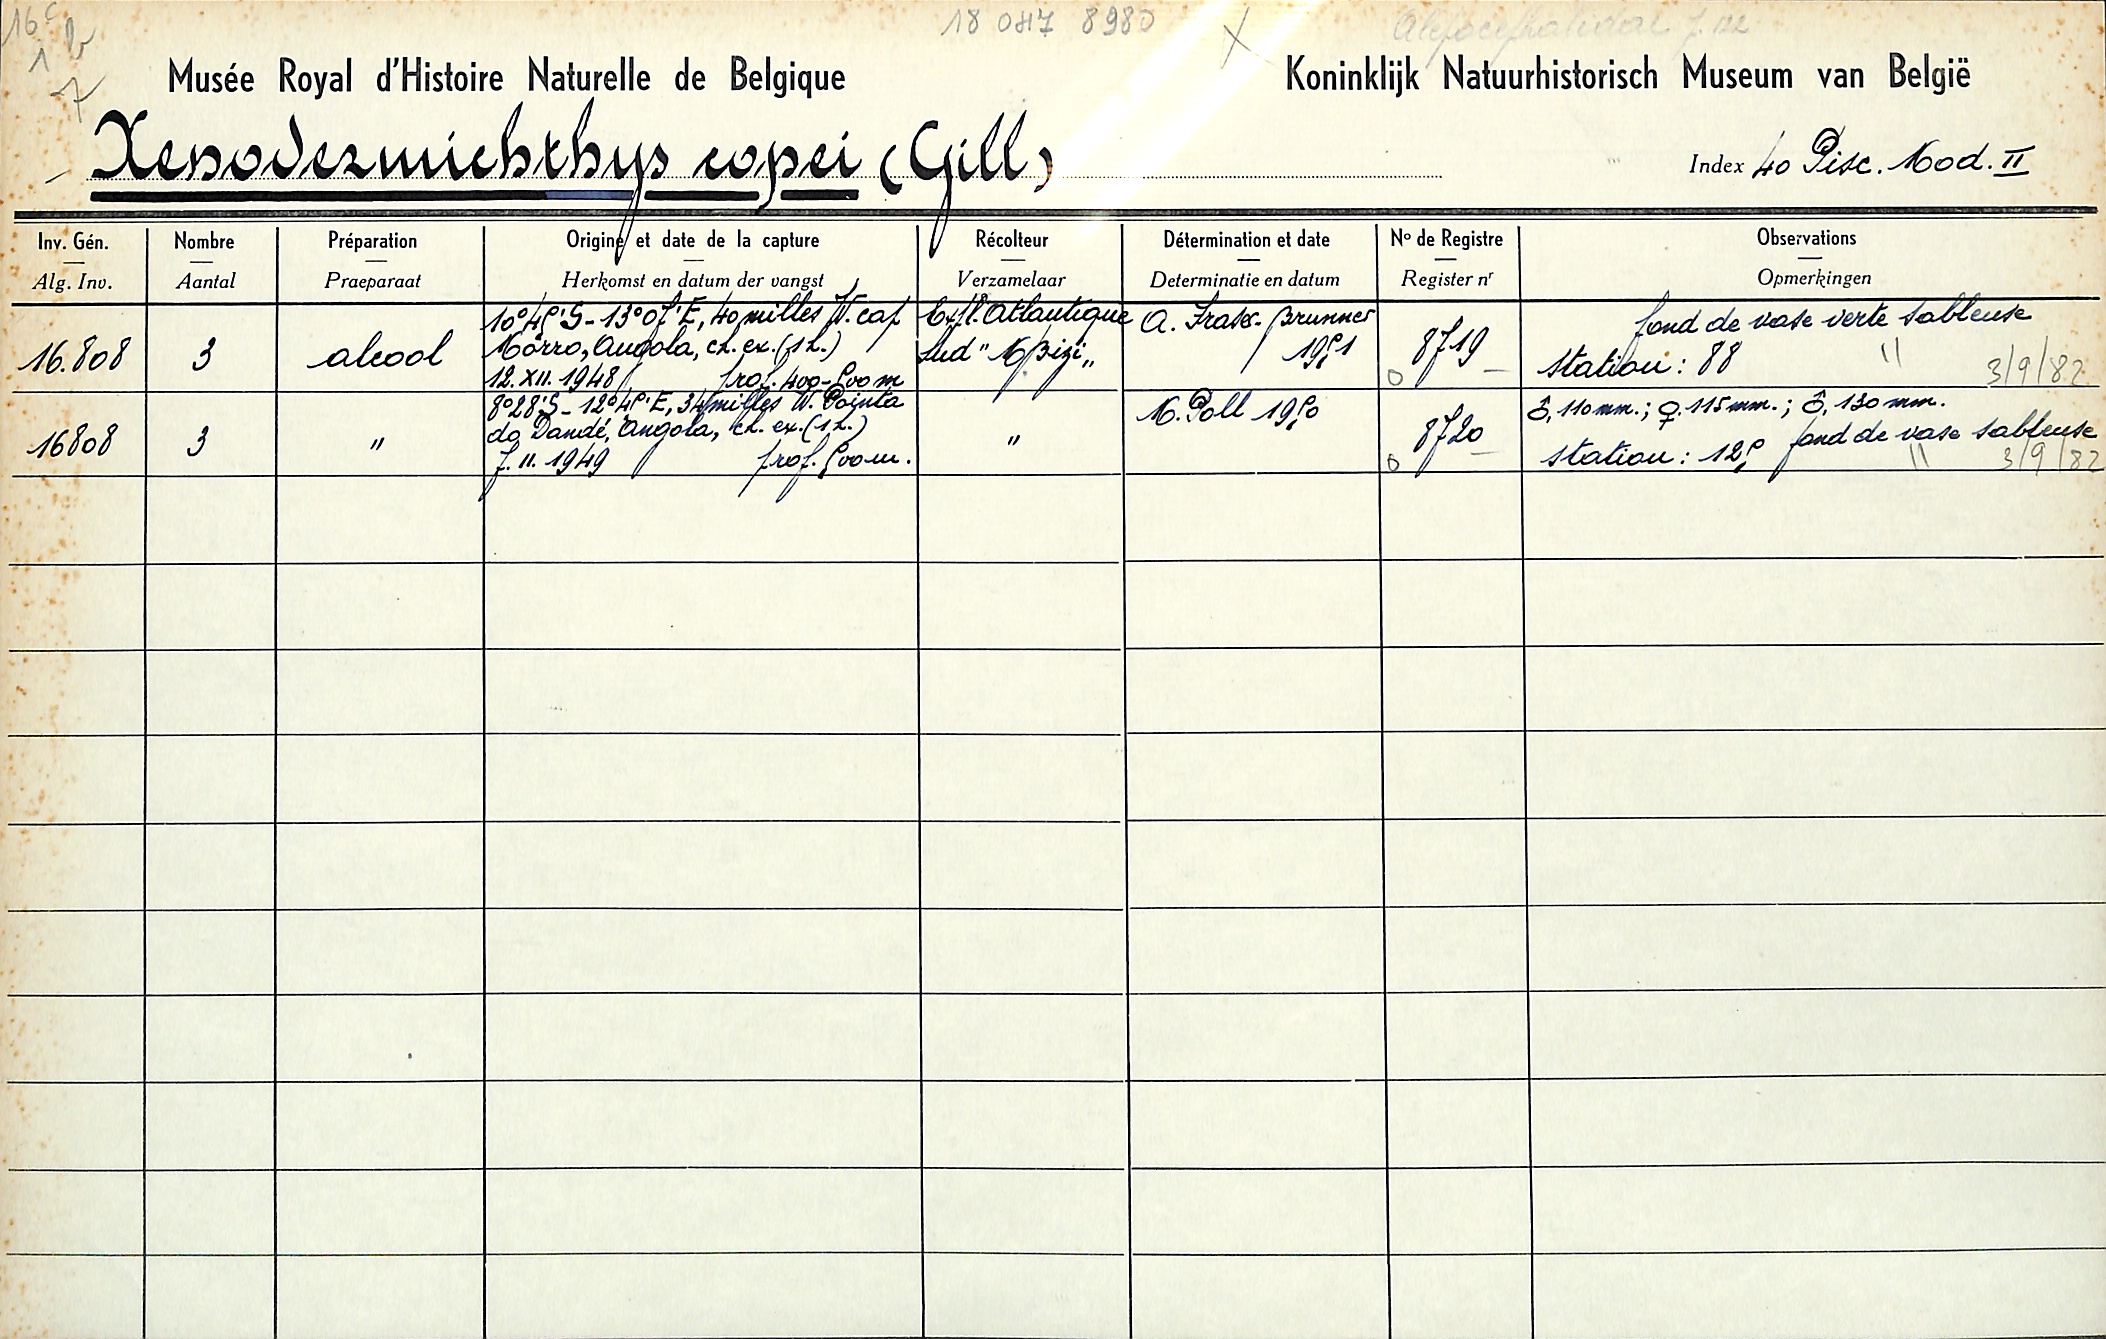 16c
1 b
7
18 047 8980
X
Alepocephalidae
Musée Royal d'Histoire Naturelle de Belgique
Koninklijk Natuurhistorisch Museum van België
Xenodermichthys copei (Gill)
Index 40 Pisc. Mod. II
Inv. Gén. Nombre Préparation Origine et date de la capture Récolteur Détermination et date No de Registre Observations
Alg. Inv. Aantal Praeparaat Herkomst en datum der vangst Verzamelaar Determinatie en datum Register nr Opmerkingen
10°45'S-13°07'E, 40 milles W. cap Exp. Atlantique A. Fraser-Brunner fond de vase verte sableuse
16.808 3 alcool Morro, Angola, ch. ex. (1 h.) Sud "M'Bizi" 1951 8719 station: 88 " 3/9/82
12.XII.1948 prof. 400-500 m
8°28'S-12°45'E, 34 milles W. Pointa M. Poll 1950 ♂, 110 mm.; ♀, 115 mm.; ♂, 130 mm.
16808 3 " do Dandé, Angola, ch. ex. (1 h.) " 8720 fond de vase sableuse
7.II.1949 prof. 500 m. station: 125 " 3/9/82